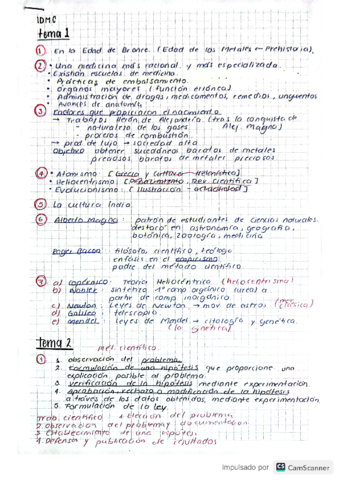 IDMC
tema 1
1 En la Edad de Bronce. (Edad de los Metales - Prehistoria).
2 • Una medicina más racional y más especializada.
• Existían escuelas de medicina.
• Prácticas de embalsamamiento.
• Órganos mayores (función errónea)
• Administración de drogas, medicamentos, remedios, ungüentos
• Avances de anatomía
3 Factores que propiciaron el nacimiento
→ Trabajos Herón de Alejandría (tras la conquista de
- naturaleza de los gases. Alej Magno)
- procesos de combustión.
→ prod de lujo → sociedad alta
Objetivo obtener sucedáneos baratos de metales
preciosos baratos de metales preciosos.
4 • Atomismo [Grecia y cultura Helenística]
• Heliocentrismo [Rev. científica]
• Evolucionismo [Ilustración - actualidad]
5 La cultura India.
6 Alberto Magno: patrón de estudiantes de ciencias naturales.
destacó en astronomía, geografía,
botánica, zoología, medicina
Roger Bacon: filósofo, científico, teólogo
énfasis en el empirismo
padre del método científico.
7 a) Copérnico: Teoría Heliocéntrica (heliocentrismo)
b) Wöhler: sintetiza 1º comp orgánico (urea) a
partir de comp inorgánico.
c) Newton: Leyes de Newton → mov de astros (Física)
d) Galileo: telescopio.
e) Mendel: leyes de Mendel → citología y genética.
(la genética)
tema 2
mét. científico.
1 1. observación del problema.
2. Formulación de una hipótesis que proporcione una
explicación posible al problema.
3. Verificación de la hipótesis mediante experimentación
4. Aprobación, rechazo o modificación de la hipótesis
a través de los datos obtenidos, mediante experimentación.
5. Formulación de la ley.
Trab. científico: 1 elección del problema
2. observación del problema y documentación
3 establecimiento de una hipótesis
4. Defensa y publicación de resultados
Impulsado por CS CamScanner